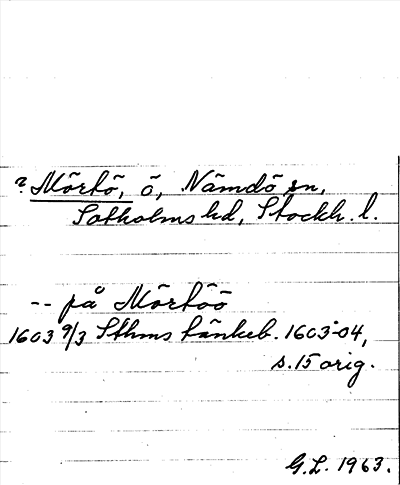 ? Mörtö, ö, Nämdö sn,
Sotholms hd, Stockh. l.
-- på Mörtöö
1603 9/3 Sthms tänkeb. 1603-04,
s. 15 orig.
G.L. 1963.